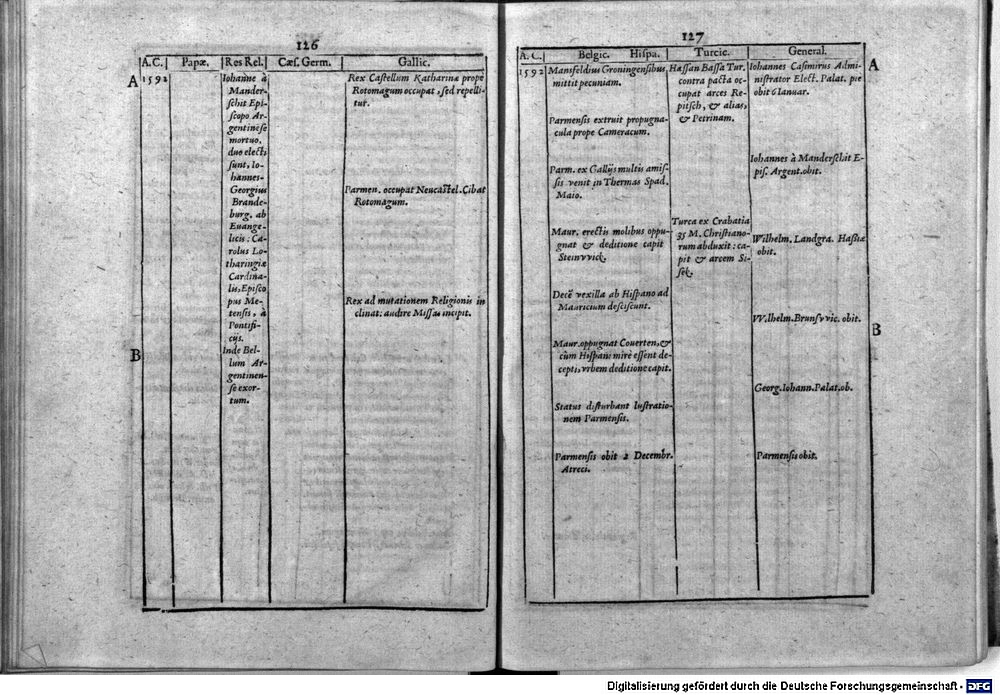 126
A. C. Papæ. Res Rel. Cæs. Germ. Gallic.
A
1592
Iohanne à
Mander-
schit Epi-
scopo Ar-
gentinēse
mortuo,
duo electi
sunt, Io-
hannes-
Georgius
Brande-
burg. ab
Euange-
licis: Ca-
rolus Lo-
tharingiæ
Cardina-
lis, Episco
pus Me-
tensis, à
Pontifi-
cijs.
B
Inde Bel-
lum Ar-
gentinen-
se exor-
tum.
Rex Castellum Katharinæ prope
Rotomagum occupat, sed repelli-
tur.
Parmen. occupat Neucastel. Cibat
Rotomagum.
Rex ad mutationem Religionis in
clinat: audire Missas incipit.
127
A. C. Belgic. Hispa. Turcic. General.
A
1592
Mansfeldius Groningensibus
mittit pecuniam.
Parmensis extruit propugna-
cula prope Cameracum.
Parm. ex Gallijs multis amis-
sis venit in Thermas Spad.
Maio.
Maur. erectis molibus oppu-
gnat & deditione capit
Steinvvick.
Decē vexilla ab Hispano ad
Mauricium desciscunt.
Maur. oppugnat Couerten, &
cùm Hispani mirè essent de-
cepti, vrbem deditione capit.
Status disturbant lustratio-
nem Parmensis.
Parmensis obit 2 Decembr.
Atreci.
Hassan Bassa Tur.
contra pacta oc-
cupat arces Re-
pitsch, & alias,
& Petrinam.
Turca ex Crabatia
35 M. Christiano-
rum abduxit: ca-
pit & arcem Si-
sek.
Iohannes Casimirus Admi-
nistrator Elect. Palat. pie
obit 6 Ianuar.
Iohannes à Manderschit E-
pis. Argent. obit.
Wilhelm. Landgra. Hassiæ
obit.
VVilhelm. Brunsvvic. obit.
B
Georg. Iohann. Palat. ob.
Parmensis obit.
Digitalisierung gefördert durch die Deutsche Forschungsgemeinschaft - DFG